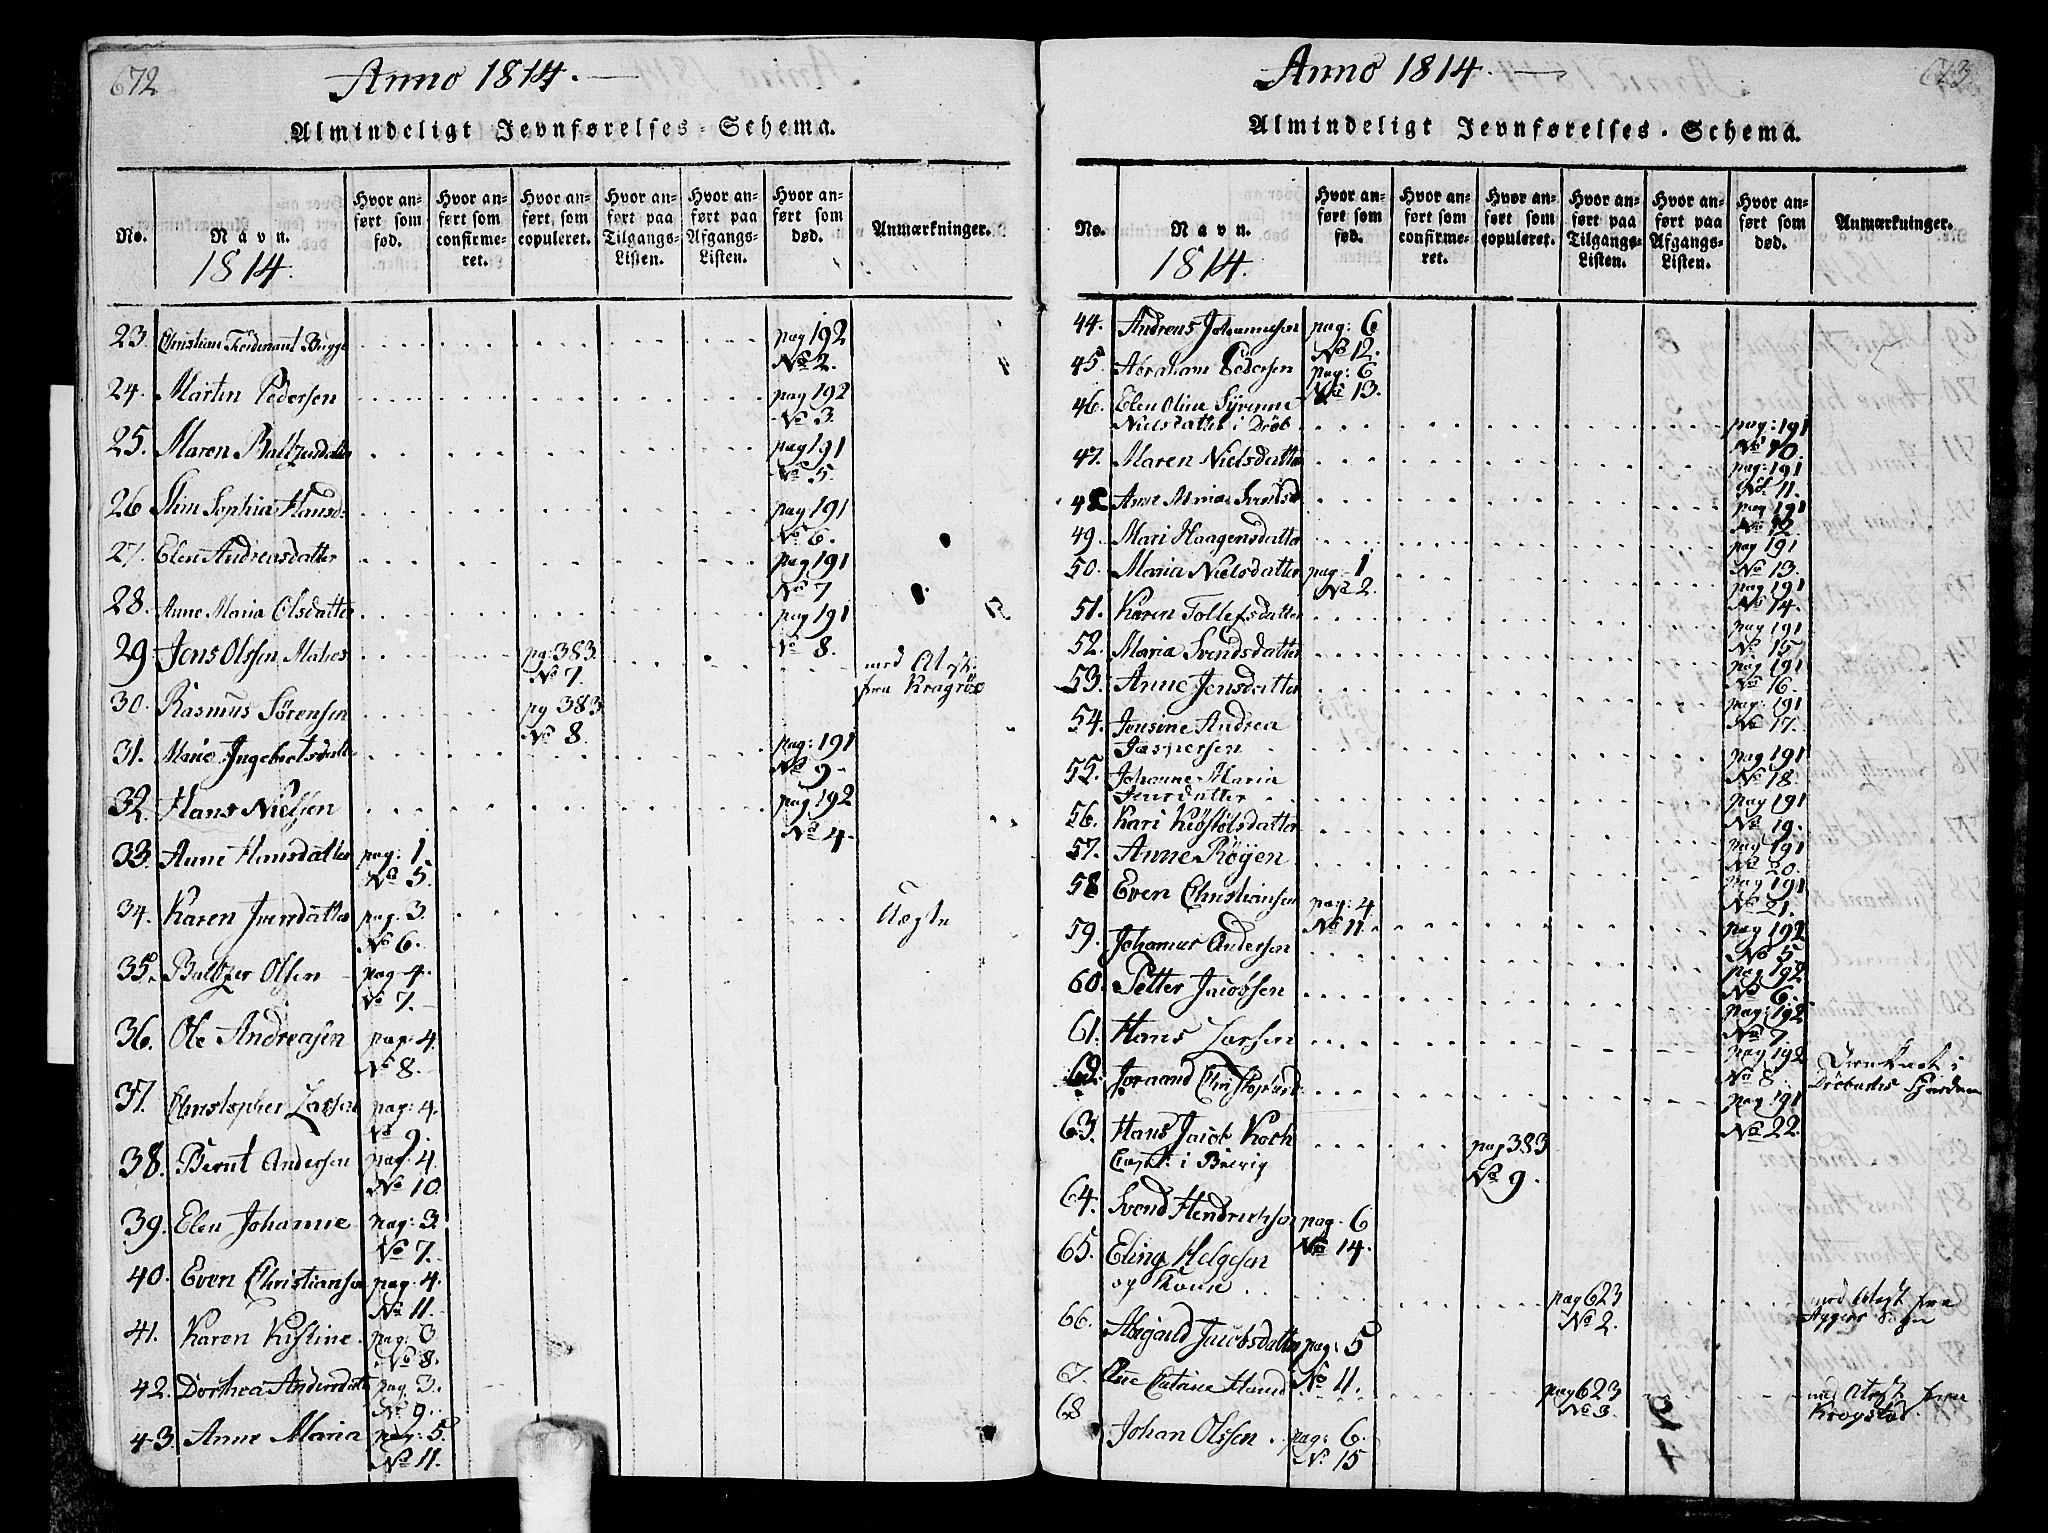 672
Anno 1814.
Almindeligt Jevnførelses-Schema.
No.
Navn.
1814.
Hvor anført som fød.
Hvor anført som confirmeret.
Hvor anført, som copuleret.
Hvor anført paa Tilgangs-Listen.
Hvor anført paa Afgangs-Listen.
Hvor anført som død.
Anmærkninger.
23. Christian Ferdinant Bugge pag 192
No 2.
24. Martin Pedersen pag 192
No 3.
25. Maren Baltzersdatter pag 191
No 5.
26 Sophia Hansd: pag 191
No 6.
27. Elen Andreasdatter pag 191
No 7
28. Anne Maria Olsdatter pag 191
No 8.
29 Jens Olssen Matros pg: 383. med Atest:
No 7. fra Kragröe
30. Rasmus Sörensen pg 383
No 8.
31. Marie Ingebretsdatter pag: 191
No 9
32. Hans Nielsen pag 192
No 4.
33. Anne Hansdatter pag: 1.
No 5.
34. Karen Iversdatter pag. 3. Uægte
No 6.
35. Baltzer Olsen pag 4.
No 7.
36. Ole Andreasen pag. 4.
No 8.
37. Christopher Larsen pag: 4.
No 9.
38. Bernt Andersen pag. 4.
No 10.
39. Elen Johanne pag: 3.
No 7.
40. Even Christiansen pag. 4.
No 11.
41. Karen Kistine. pag: 3
No 8.
42. Dorthea Andersdatter pag. 3.
No 9.
43. Anne Maria pag: 5.
No 11.
673
Anno 1814.
Almindeligt Jevnførelses-Schema.
No.
Navn.
1814.
Hvor anført som fød.
Hvor anført som confirmeret.
Hvor anført som copuleret.
Hvor anført paa Tilgangs-Listen.
Hvor anført paa Afgangs-Listen.
Hvor anført som død.
Anmærkninger.
44. Andreas Johannesen pag: 6
No 12.
45. Abraham Pedersen pag: 6
No 13.
46. Elen Oline Syvrinne
Nielsdatter i Dröb. pag: 191
No 10.
47. Maren Nielsdatter pag: 191
No 11.
48 Anne Maria Svendsd pag 191
No 12.
49. Mari Haagensdatter pag 191
No 13.
50. Maria Nielsdatter pag 1 pag 191
No 2. No 14.
51. Karen Tollefsdatter pag 191
No 15
52. Maria Svendsdatter pag 191
No 16.
53. Anne Jensdatter pag: 191
No 17.
54. Jensine Andrea
Jaspersen pag 191
No 18
55. Johanne Maria
Jensdatter pag 191
No 19.
56. Kari Kiöstölsdatter pag 191
No 20.
57. Anne Röyen pag 191
No 21.
58 Even Christiansen pag: 4 pag 192
No 11. No 5
59. Johannes Andersen pag 192
No 6.
60. Petter Jacobsen pag: 192
No 7
61. Hans Larsen pag 192
No 8.
62. Joraand Christophersd pag 191
No 22.
Druknet i
Dröbachs Fjorden
63. Hans Jacob Koch pag 383
Capt: i Brevig No 9.
64. Svend Hendrichsen pag. 6
No 14.
65. Eling Helgesen
og Kone pag 623 med Atest fra
No 2. Aggers Sogn
66. Abigaeld Jacobsdatter pag: 5
No 11.
67. Catrine Hansd pag 623 med Atest fra
No 3. Krogstad.
68 Johan Olssen pag: 6.
No 15